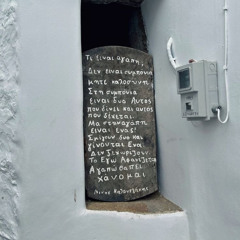 Τι είναι αγάπη;
Δεν είναι συμπόνια
μήτε καλοσύνη.
Στη συμπόνια
είναι δυο Αυτός
που δίνει και αυτός
που δέχεται.
Μα στην αγάπη
είναι ένας!
Σμίγουν δυο και
γίνονται ένα.
Δεν ξεχωρίζουν.
Το Εγώ Αφανίζεται
Αγαπώ θα πει
χάνομαι
Νίκος Καζαντζάκης